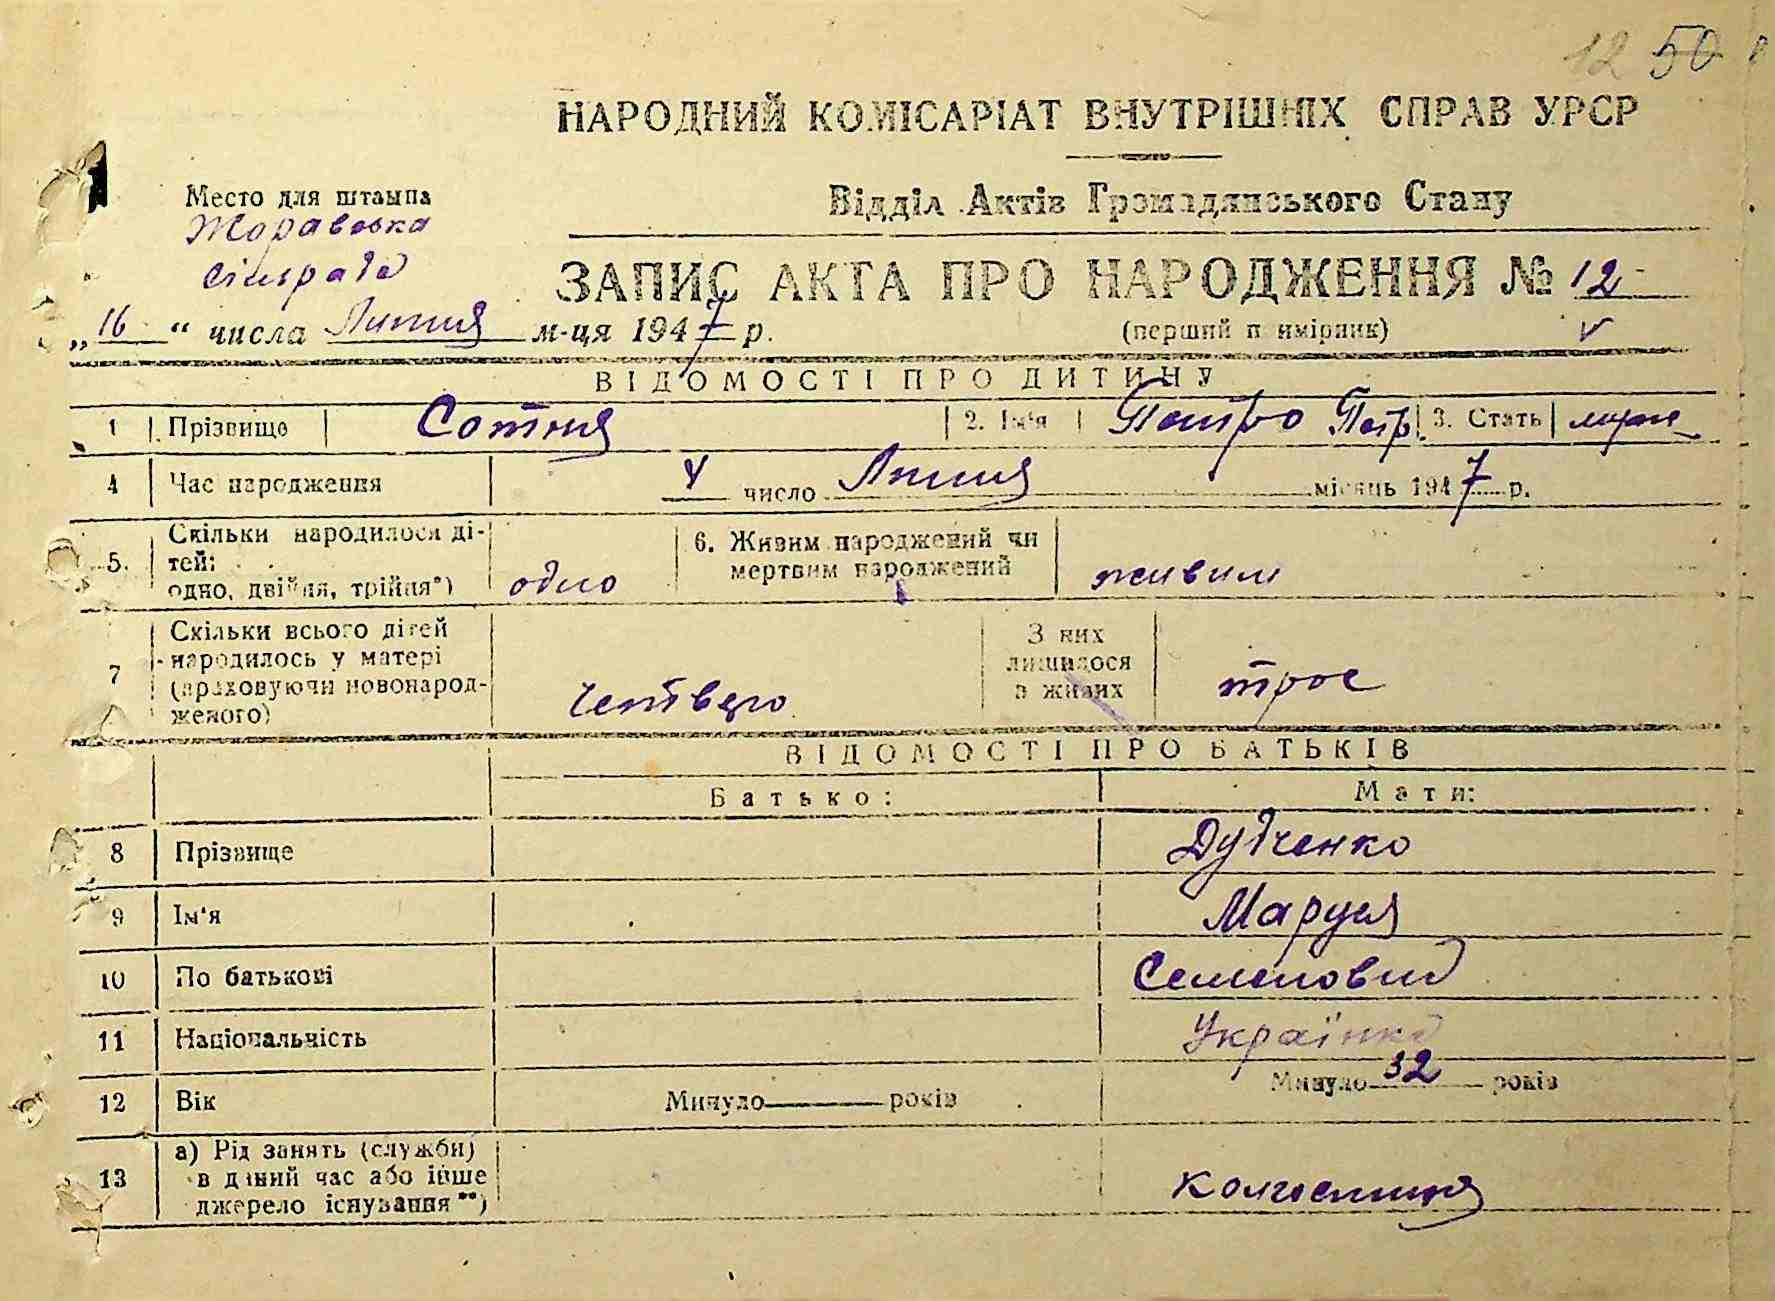 12 50
НАРОДНИЙ КОМІСАРІАТ ВНУТРІШНІХ СПРАВ УРСР
Место для штампа
Відділ Актів Громадянського Стану
Жоравська
сільрада
ЗАПИС АКТА ПРО НАРОДЖЕННЯ № 12
„16“ числа Липня м-ця 1947 р.
(перший примірник)
ВІДОМОСТІ ПРО ДИТИНУ
1 Прізвище Сотня 2. Ім'я Петро Петр. 3. Стать
4 Час народження число Липня місяць 1947 р.
5. Скільки народилося ді-
тей:
одно, двійня, трійня*) одно
6. Живим народжений чи
мертвим народжений живим
7 Скільки всього дітей
народилось у матері
(враховуючи новонарод-
женого) четверо
З них
лишилося
в живих трое
ВІДОМОСТІ ПРО БАТЬКІВ
Батько: Мати:
8 Прізвище Дудченко
9 Ім'я Маруся
10 По батькові
11 Національність Українка
12 Вік Минуло років Минуло 32 років
13 а) Рід занять (служби)
в даний час або інше
джерело існування**) колгоспниця